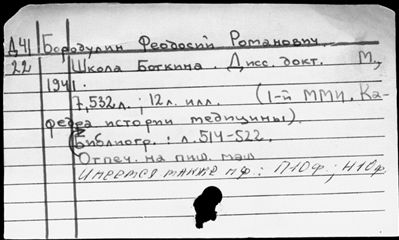 Д41 Бородулин Феодосий Романович.
22 Школа Боткина. Дисс. докт. М.,
1941.
7,532 л.; 12 л. илл. (1-й ММИ. Ка-
федра истории медицины).
(Библиогр.: л. 514-522.
Отпеч. на пиш. маш
Имеется также мф.: П10ф; Н10ф.